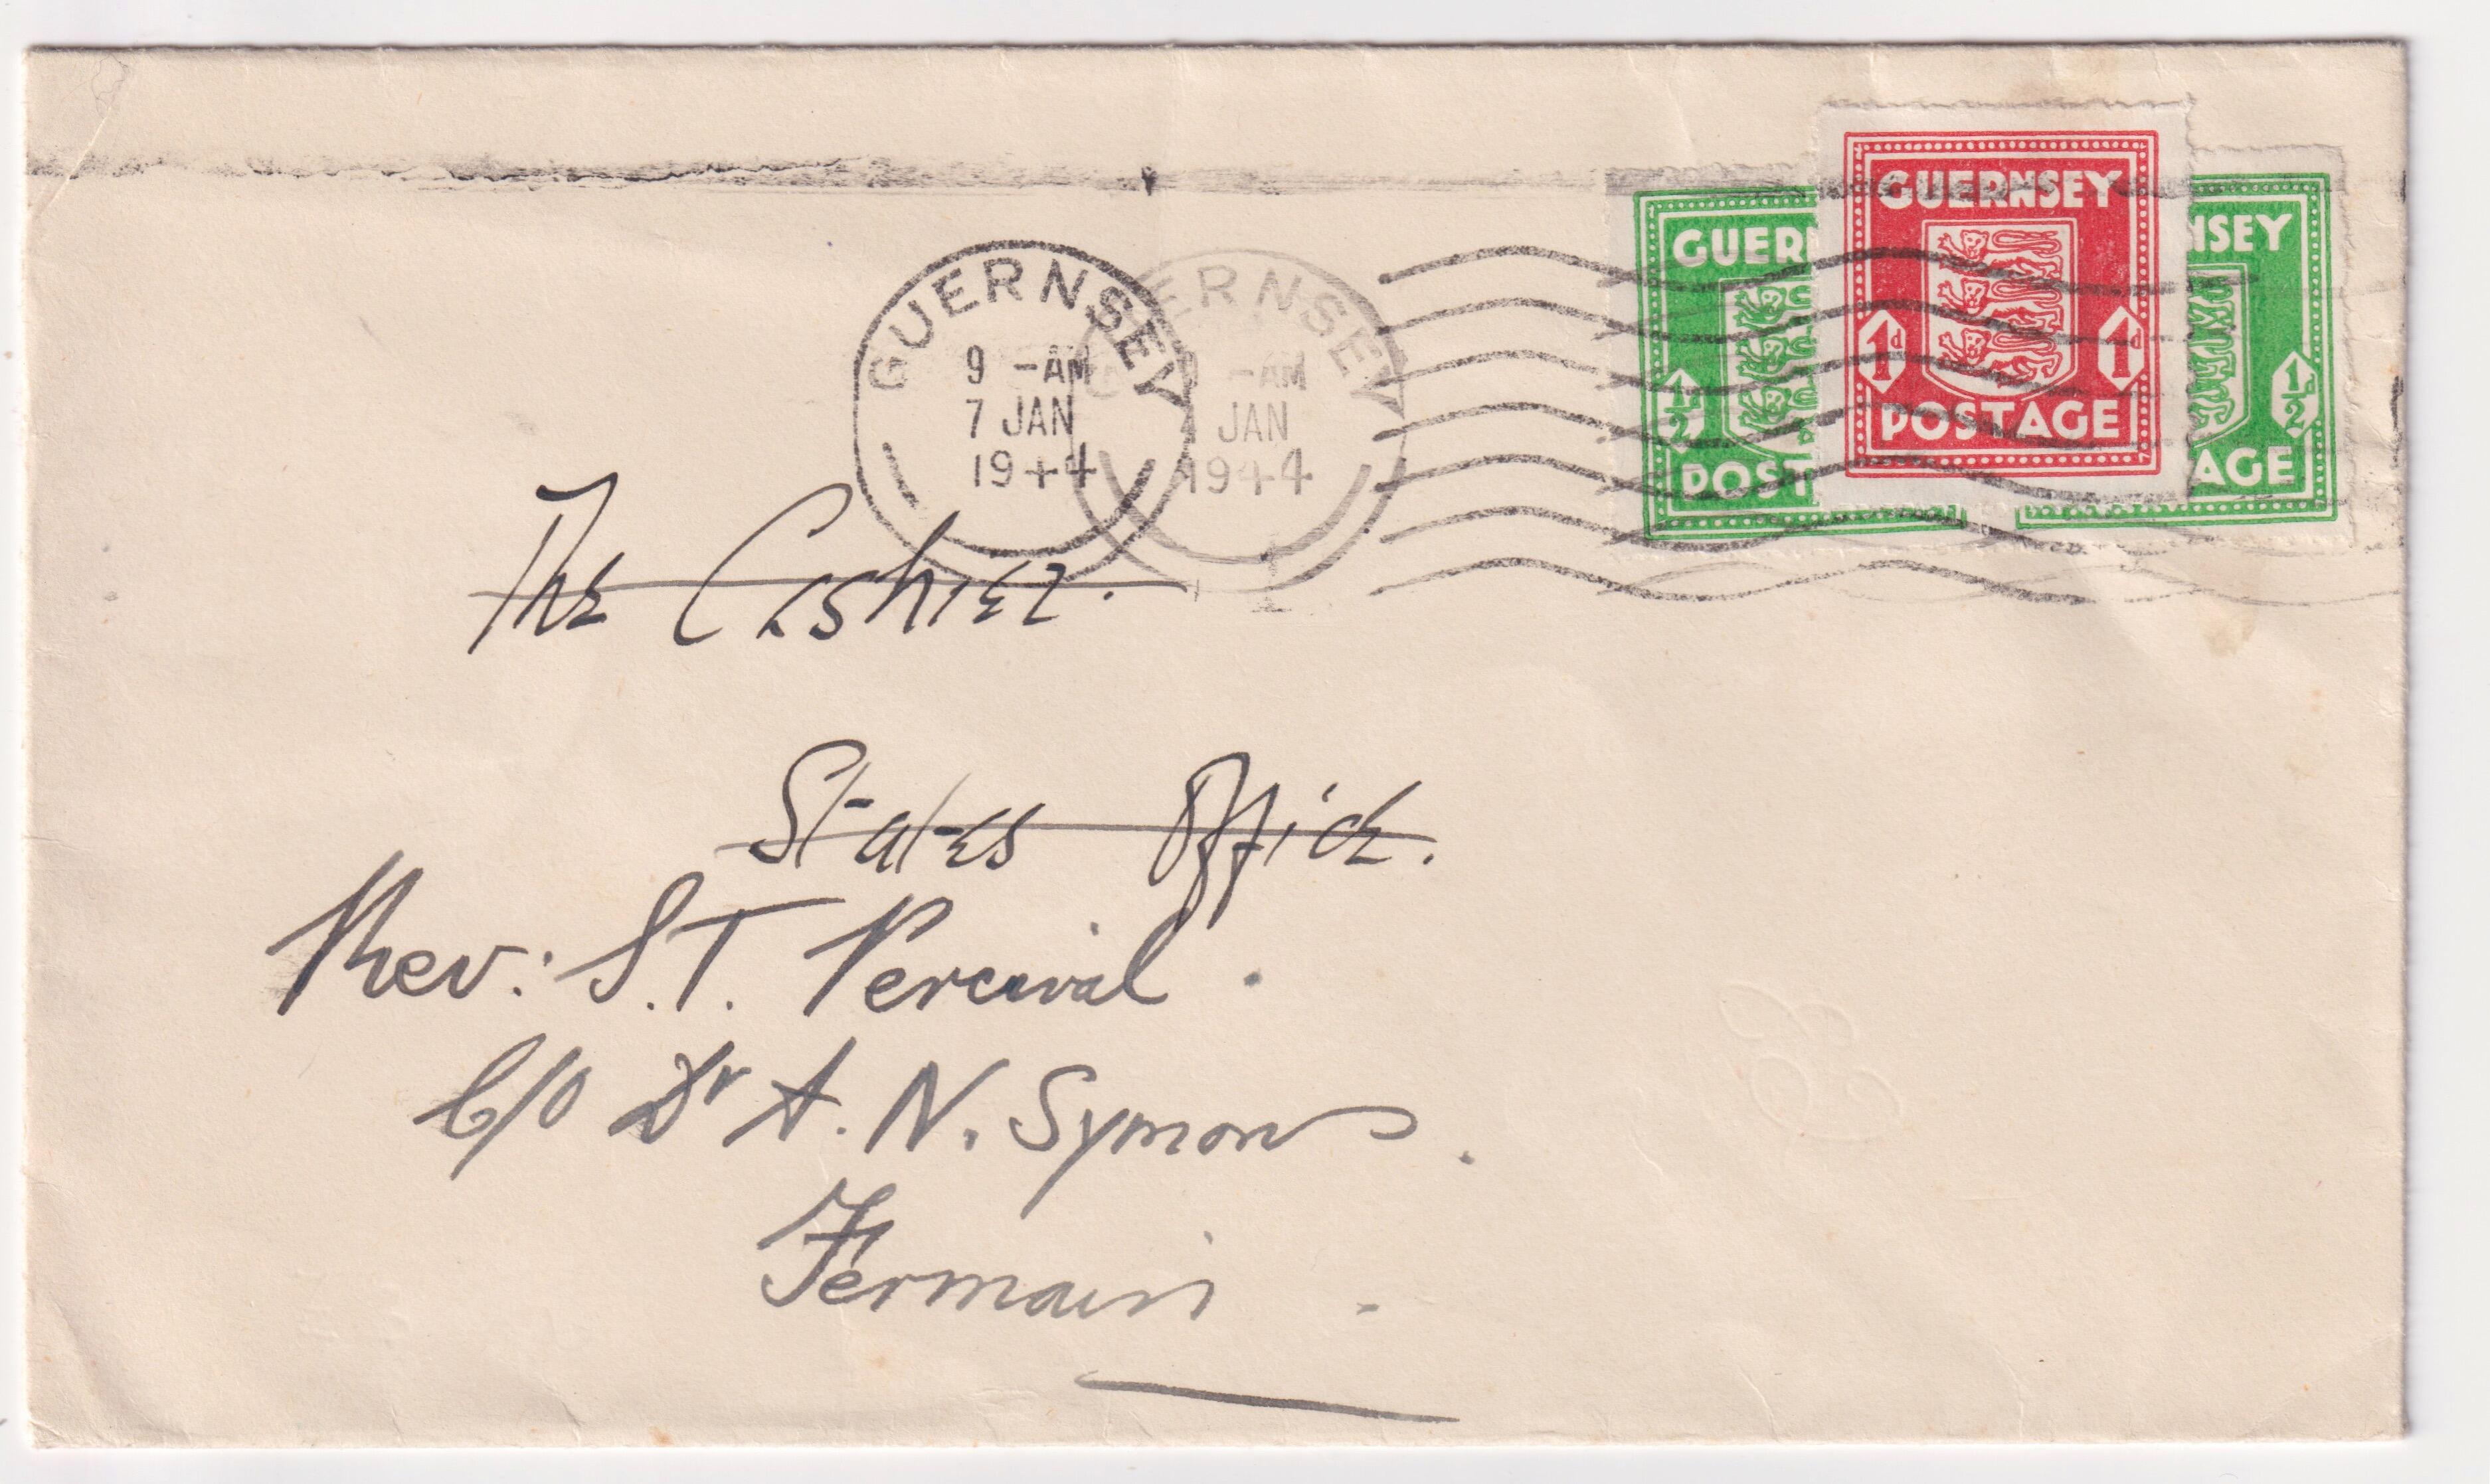 GUERNSEY
9 -AM
7 JAN
1944
ERNSEY
-AM
JAN
1944
GUER
½
POST
GUERNSEY
1d 1d
POSTAGE
NSEY
½
AGE
The Cashier.
States Office.
Rev: S.T. Percival.
C/o Dr A. N. Symons.
Fermain.